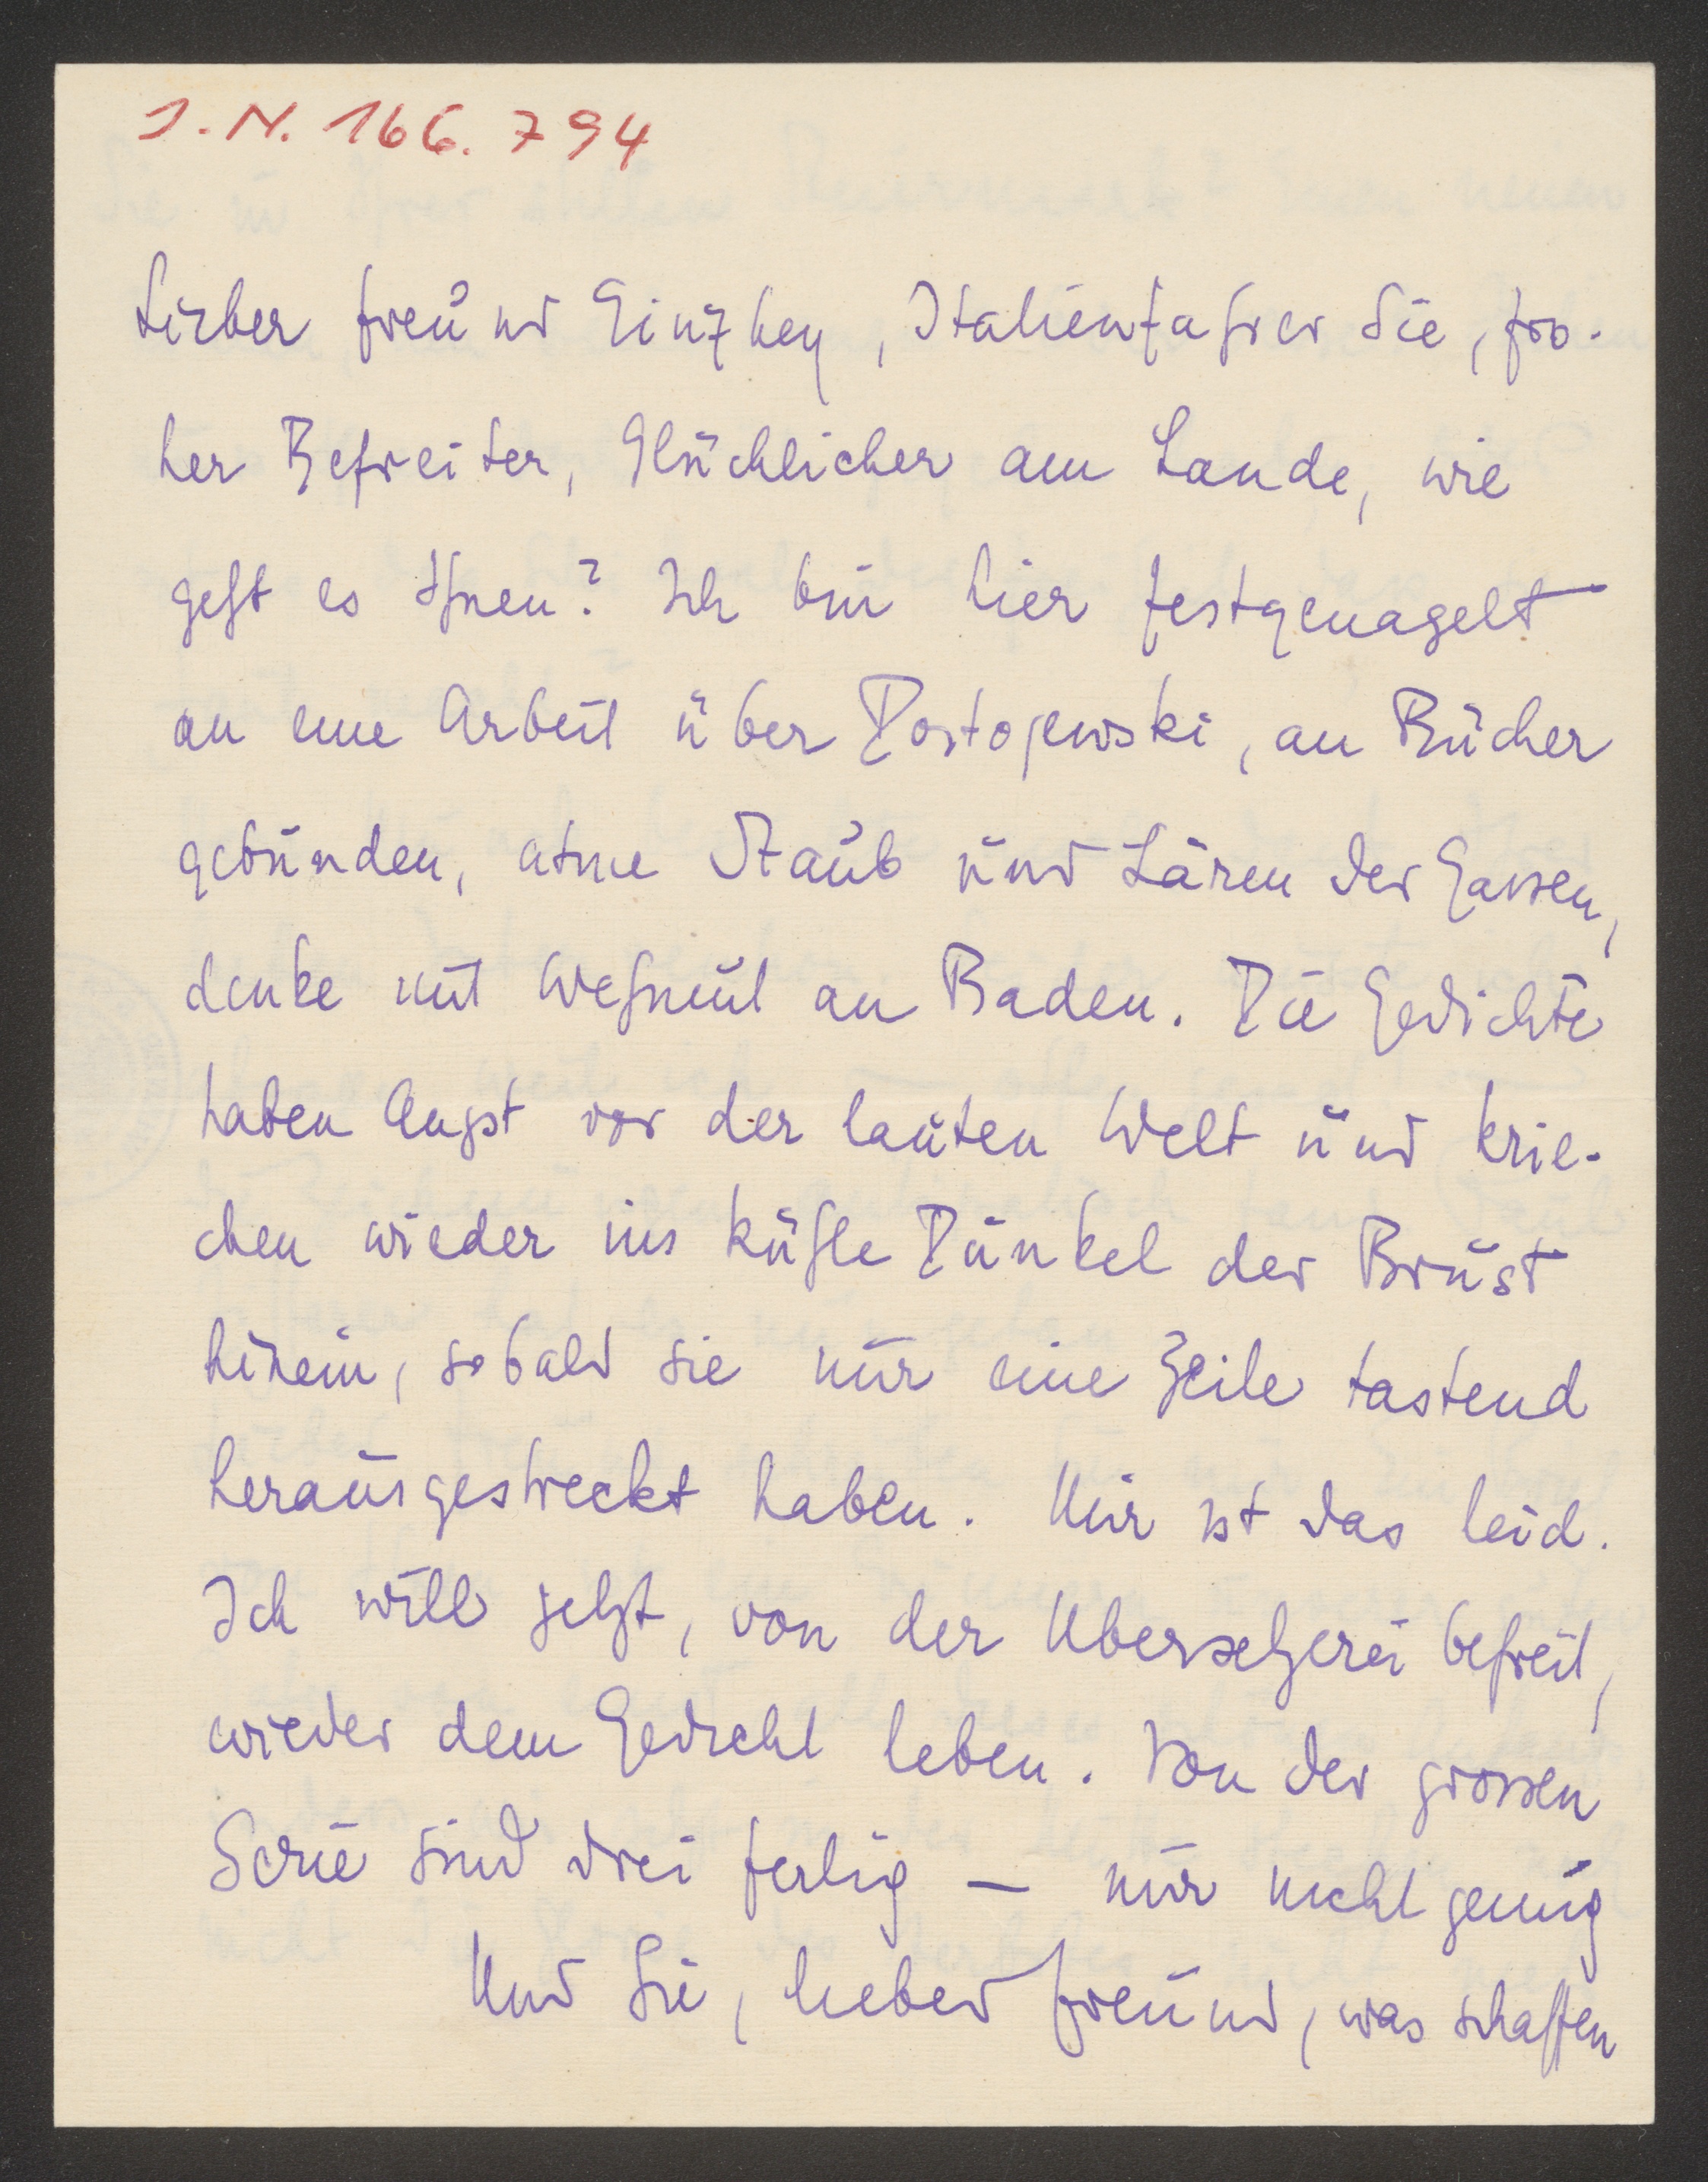 I.N. 166.794
Lieber Freund Ginzkey, Italienfahrer Sie, fro-
her Befreiter, Glücklicher am Lande, wie
geht es Ihnen? Ich bin hier festgenagelt
an eine Arbeit über Dostojewski, an Bücher
gebunden, atme Staub und Lären der Gassen,
denke mit Wehmut an Baden. Die Gedichte
haben Angst vor der lauten Welt und krie-
chen wieder ins kühle Dunkel der Brust
hinein, sobald sie nur eine Zeile tastend
herausgestreckt haben. Mir ist das leid.
Ich will jetzt, von der Übersetzerei befreit,
wieder dem Gedicht leben. Von der grossen
Serie sind drei fertig — nur nicht genug
Und Sie, lieber Freund, was schaffen